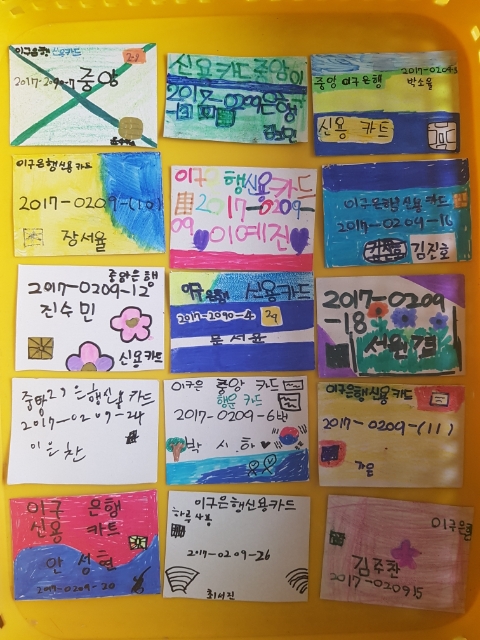 이구은행 신용카드
2017-0209-7 중앙
신용카드 중앙이
2017-0209은행구
중앙 이구은행
2017-0209-3
박소율
신용 카드
이구은행 신용카드
2017-0209-(10)
장서율
이구 은행신용카드
2017-0209-
09
이예진
이구은행 신용카드
2017-0209-16
김진호
중앙은행
2017-0209-12
진수민
신용카드
은행 신용카드
2017-2090-40
29
2017-0209
-18
서원결
중앙29은행신용카드
2017-0209-24
이은찬
이구은 중앙 카드
행운 카드
2017-0209-6번
박시하
이구은행신용카드
2017-0209-(11)
이구 은행
신용 카드
안성현
2017-0209-20
이구은행신용카드
하루사용
2017-0209-26
최서진
이구은행
김주찬
2017-020915